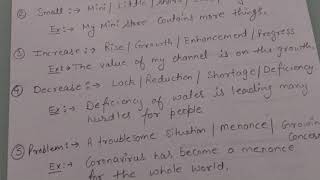 ② Small:→ Mini / Little / Short /
Ex:→ My Mini Store Contains more things.
③ Increase:→ Rise / Growth / Enhencement / Progress
Ex:→ The value of my channel is on the growth.
④ Decrease:→ Lack / Reduction / Shortage / Deficiency
Ex:→ Deficiency of water is leading many
hurdles for people
⑤ Problem:→ A troublesome Situation / menonce / Growing
Concern
Ex:→ Coronavirus has become a menonce
for the whole world.